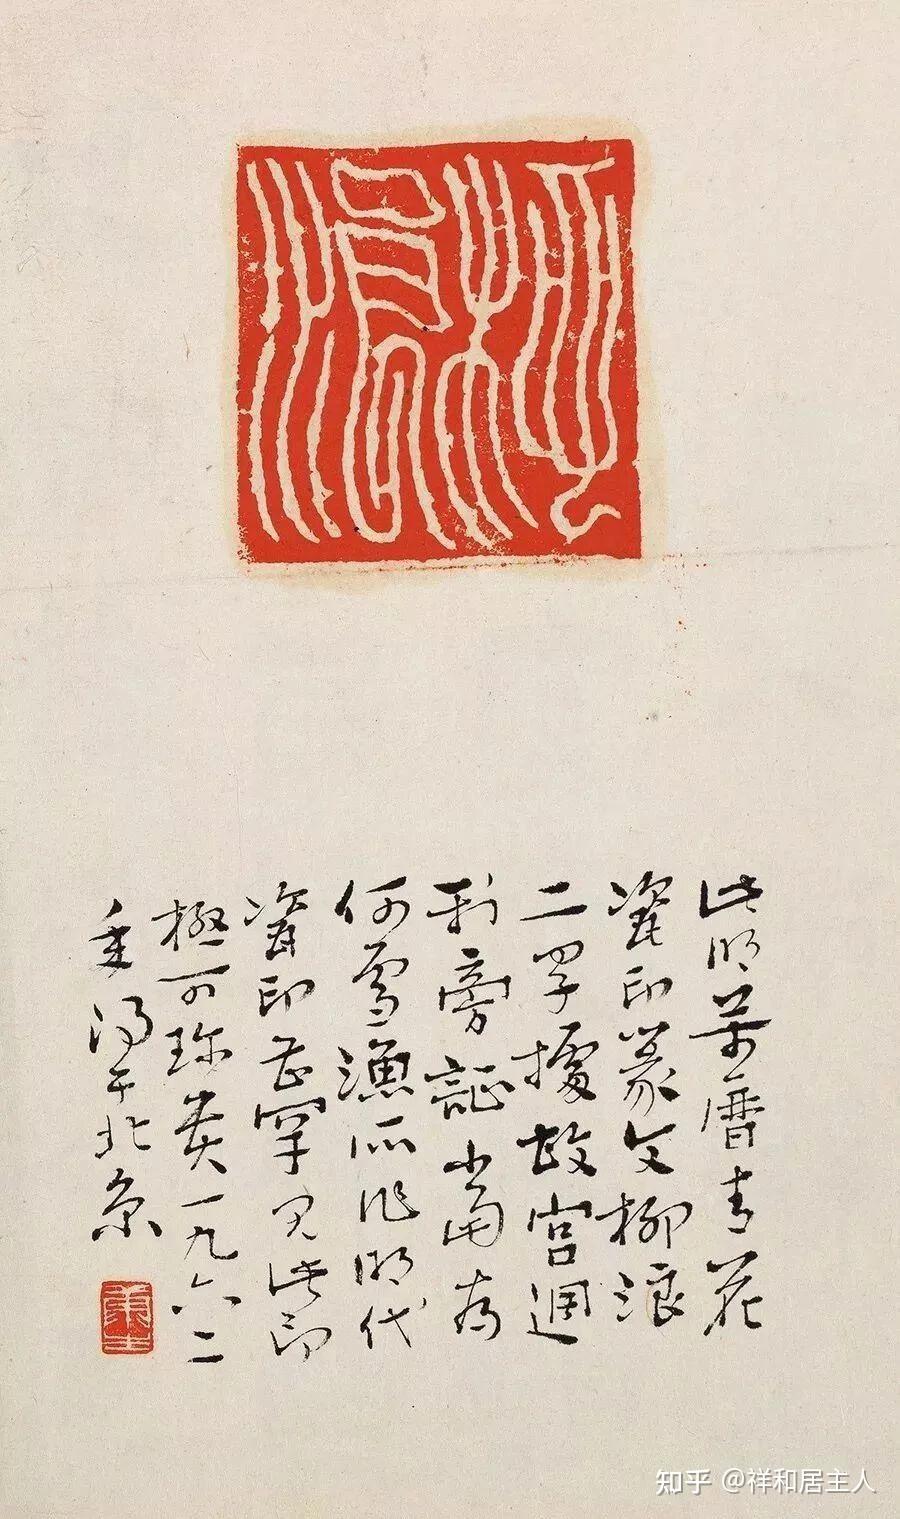 柳浪
此明萬曆青花
瓷印篆文柳浪
二字據故宮週
刊旁証當為
何雪漁所作明代
瓷印甚罕見此印
極可珍貴一九六二
年得于北京
康生
知乎 @祥和居主人